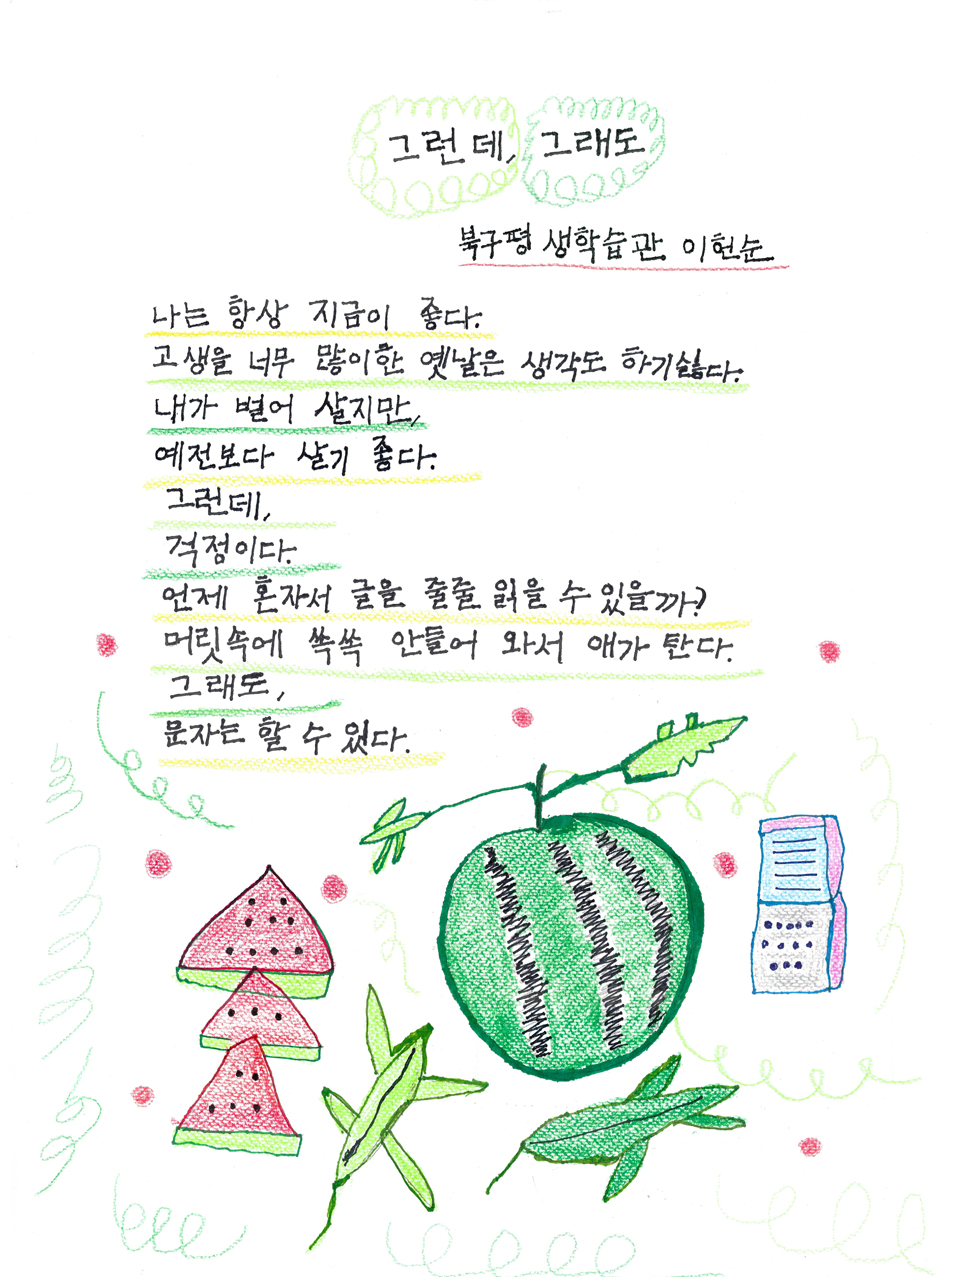 그런데, 그래도
북구평생학습관 이헌순
나는 항상 지금이 좋다.
고생을 너무 많이한 옛날은 생각도 하기싫다.
내가 벌어 살지만,
예전보다 살기 좋다.
그런데,
걱정이다.
언제 혼자서 글을 줄줄 읽을 수 있을까?
머릿속에 쏙쏙 안들어 와서 애가 탄다.
그래도,
문자는 할 수 있다.